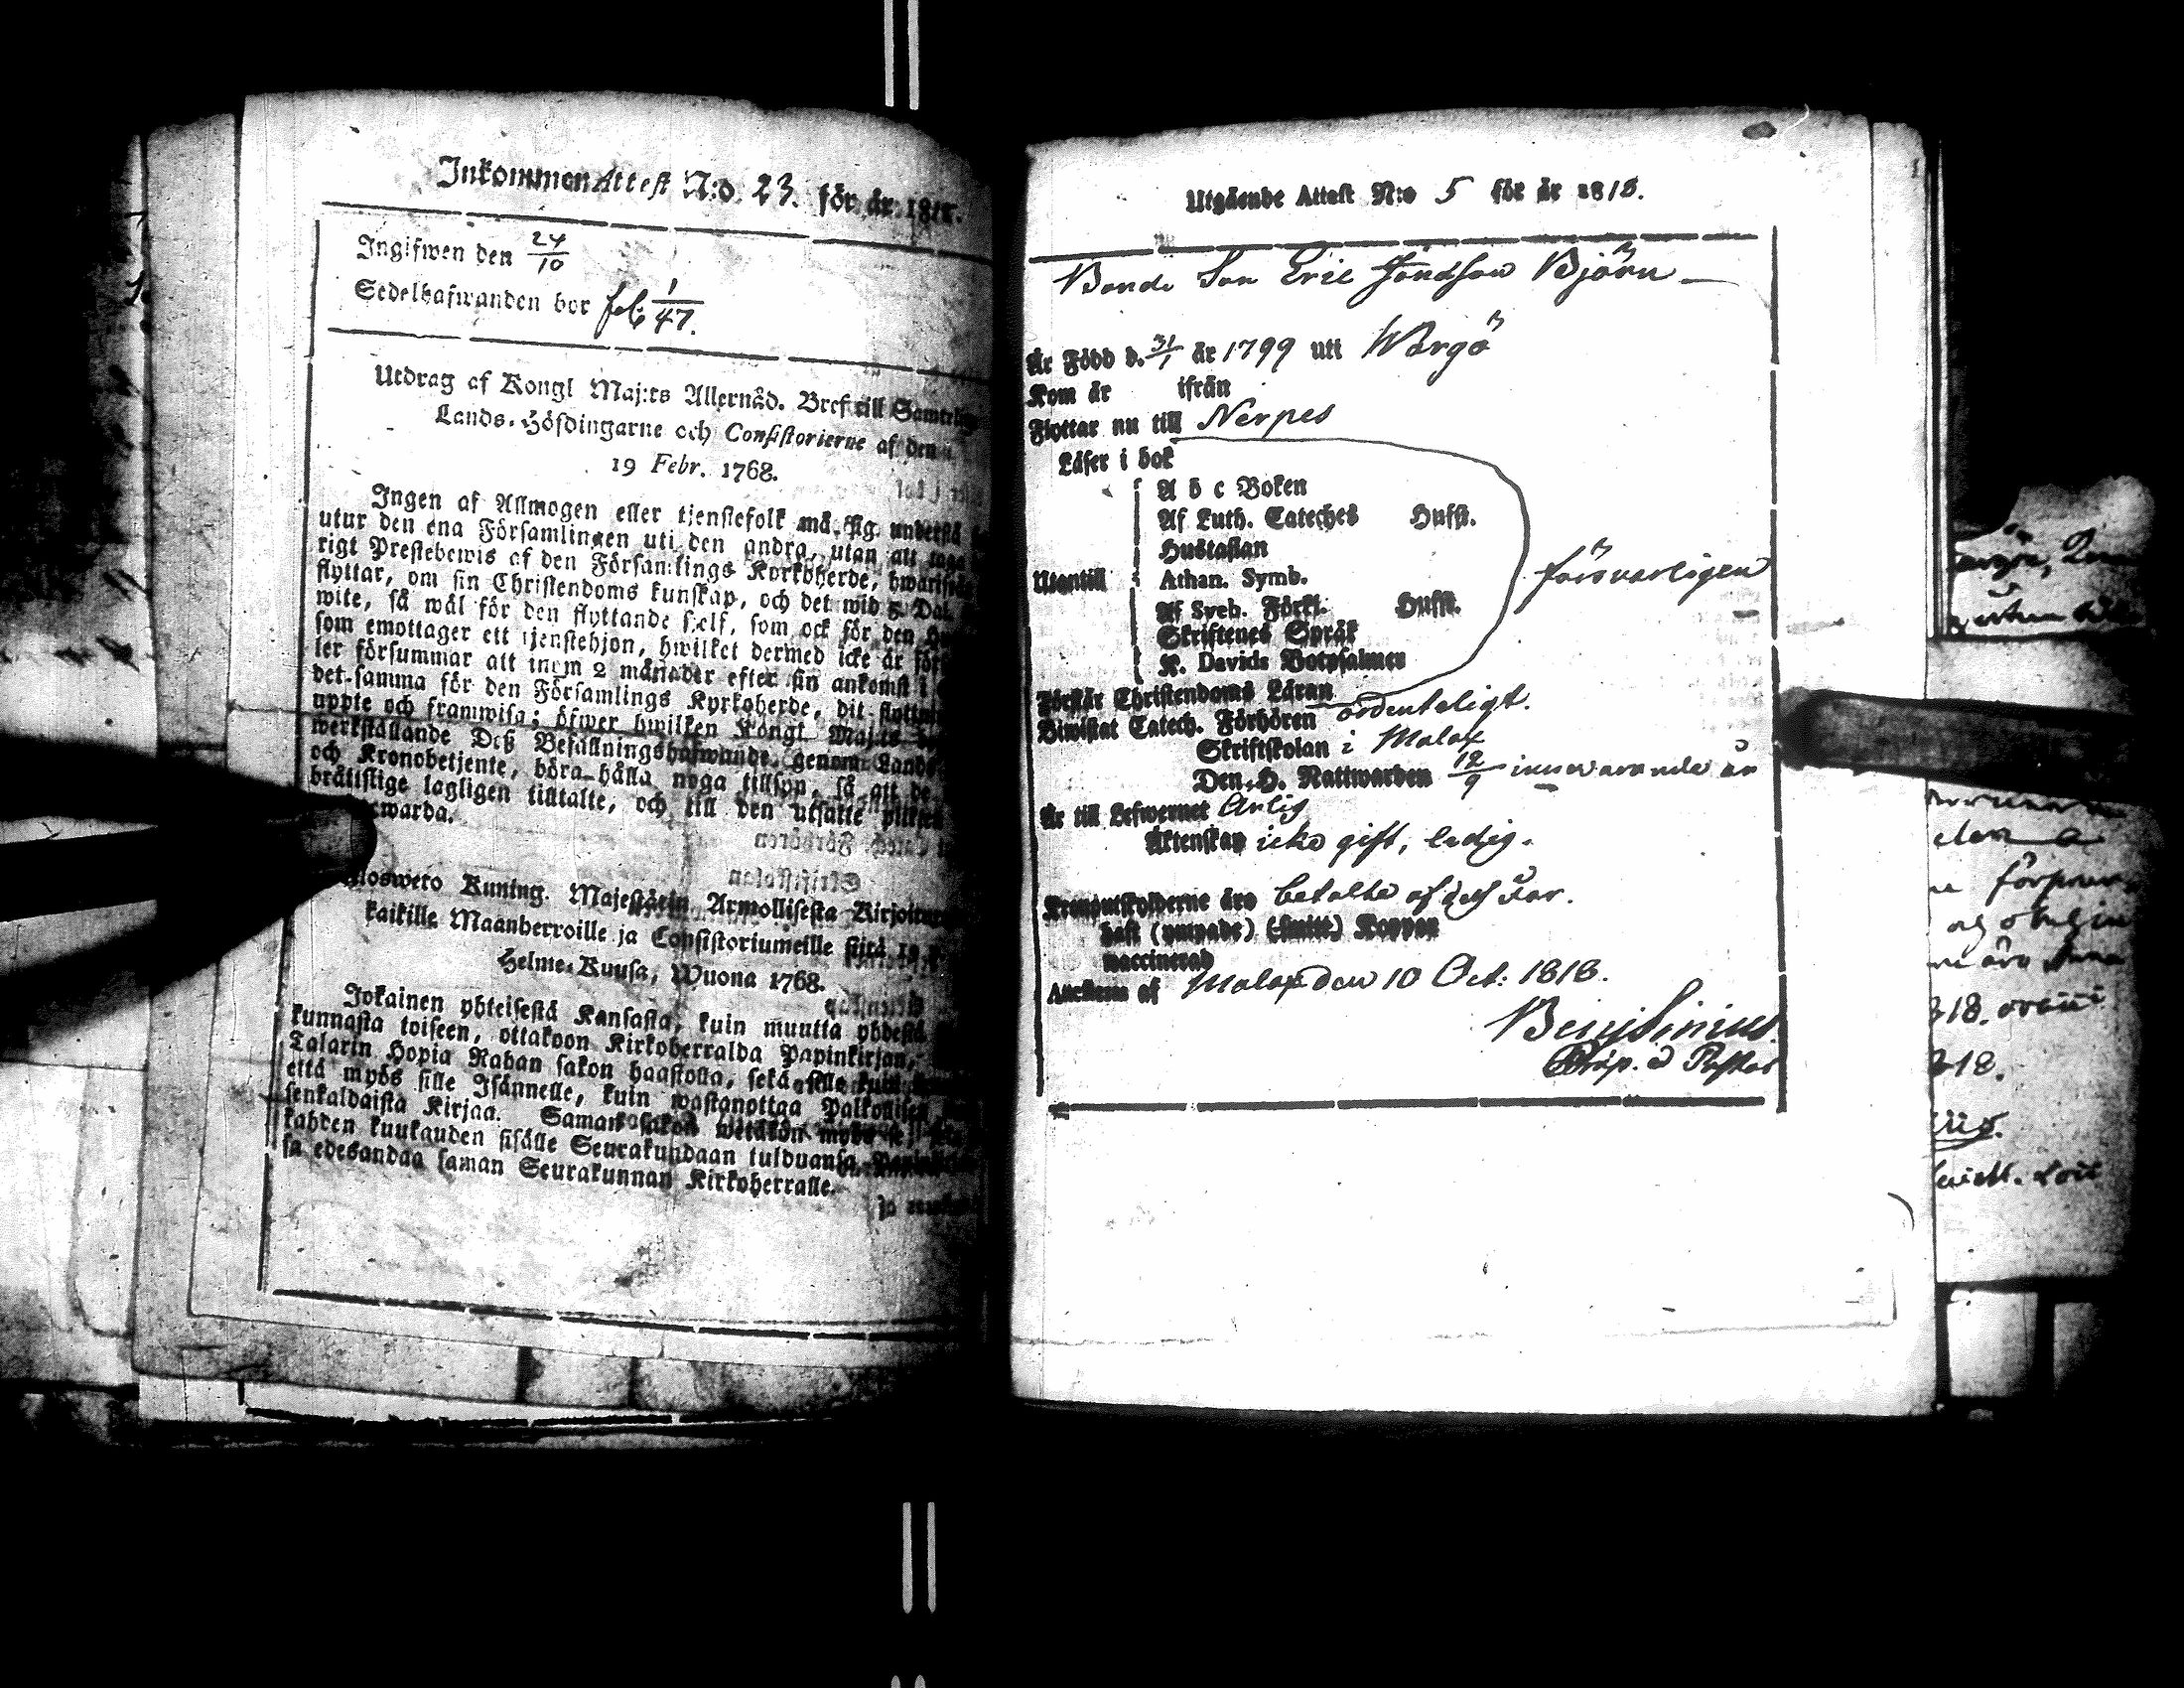 Inkommen Attest N:o 23. för år 1818.
Ingifwen den 24/10
Sedelhafwanden bor fol: 1/47.
Utdrag af Kongl Maj:ts Allernåd. Bref till Samtelige
Lands-Höfdingarne och Consistorierne af den
19 Febr. 1768.
Ingen af Allmogen eller tjenstefolk må sig understå
utur den ena Församlingen uti den andra, utan att taga
rigt Prestebewis af den Församlings Kyrkoherde, hwarifrån
flyttar, om sin Christendoms kunskap, och det wid 5 Dal.
wite, så wäl för den flyttande sjelf, som ock för den
som emottager ett tjenstehjon, hwilket dermed icke är
ler försummar att inom 2 månader efter sin ankomst
det samma för den Församlings Kyrkoherde, dit flyttni
uppte och framwisa; öfwer hwilken Kongl. Maj:ts
werkställande Deß Befallningshafwande, genom Lands
och Kronobetjente, böra hålla noga tillsyn, så att de
bråttslige lagligen tilltalte, och till den utsatte plikten
warda.
Uloswero Kuning. Majestätin Armollisesta Kirjoituxesta
kaikille Maanherroille ja Consistoriumeille siitä 19
Helme-Kuusa, Wuona 1768.
Jokainen yhteisestä Kansasta, kuin muutta yhdestä
kunnasta toiseen, ottakoon Kirkoherralda Papinkirjan,
Talarin Hopia Rahan sakon haastolla, sekä sille kuin
että myös sille Isännelle, kuin wastanottaa Palkollisen
senkaldaista Kirjaa. Saman sakon wetäkön myös se
kahden kuukauden sisälle Seurakundaan tulduansa
sa edesandaa saman Seurakunnan Kirkoherralle.
Utgående Attest N:o 5 för år 1818.
Bonde Son Eric Jondson Björn
Är Född d. 31/1 år 1799 uti Wargö
Kom år ifrån
Flyttar nu till Nerpes
Läser i bok
A b c Boken
Af Luth. Cateches Hufst.
Hustaflan
Utantill Athan. Symb. försvarligen
Af Sveb. Förkl. Hufst.
Skriftenes Språk
K. Davids Botpsalmer
Förstår Christendoms Läran
Biwistat Catech. Förhören ordenteligt.
Skriftskolan i Malax
Den H. Nattwarden 12/9 innevarande år
Är till Lefwernet Ärlig
Äktenskap icke gift, ledig.
Kronoutskylderne äro betalte af deß Far.
haft (ympade) Koppor
vaccinerad
Attestera af Malax den 10 Oct: 1818.
Benj Sinius
Præp. & Pastor